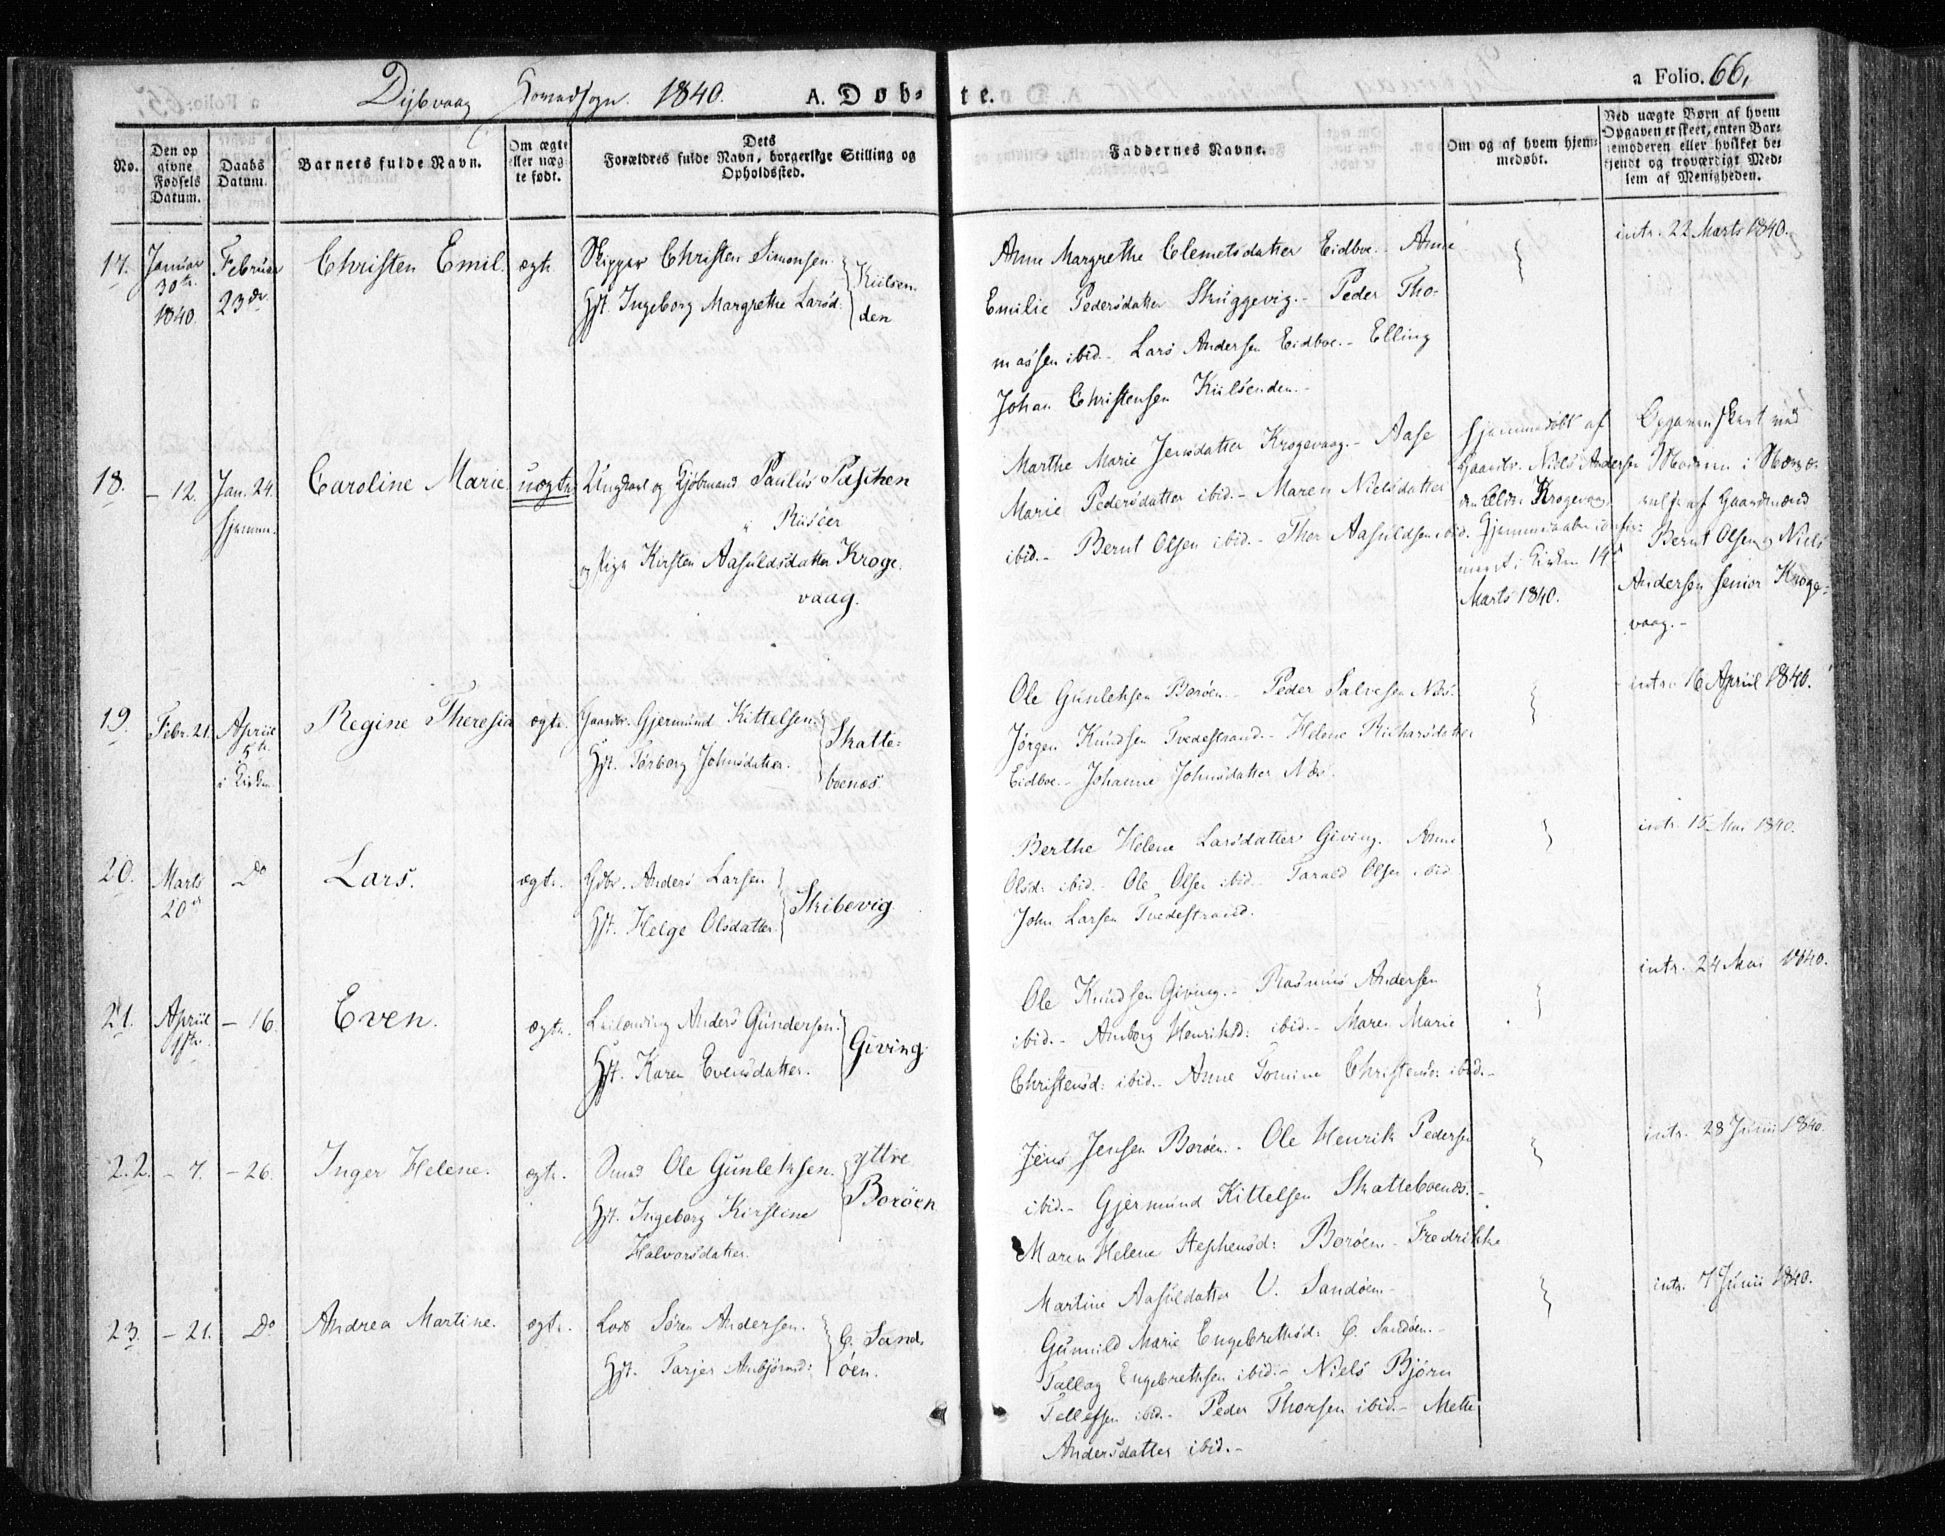 Dybvaag Hovedsogn. 1840. A. Døb- te. a Folio. 66,
No.
Den op givne Fødsels Datum.
Daabs Datum.
Barnets fulde Navn.
Om ægte eller uæg- te født.
Dets Forældres fulde Navn, borgerlige Stilling og Opholdssted.
Faddernes Navne.
Om og af hvem hjem- medøbt.
Ved uægte Børn af hvem Opgaven er skeet, enten Bar- nemoderen eller hvilket be- kjendt og troværdigt Med- lem af Menigheden.
17. Januar 30te 1840. Februar 23de Christen Emil. ægte
Skipper Christen Simonsen
Hst. Ingeborg Margrethe Larsd:
Kiilsen-
den
Anne Margrethe Clemetsdatter Eidboe. - Anne
Emilie Pedersdatter Skuggevig. - Peder Tho-
massen ibid. - Lars Andersen Eidboe. - Elling
Johan Christensen Kiilsenden. -
intr. 22 Marts 1840.
18. - 12. Jan. 24. hjemme. Caroline Marie uægte
Ungkarl og Kjøbmand Paulus Paschen
Risöer
og Pige Kirsten Aasuldsdatter Kroge-
vaag.
Marthe Marie Jensdatter Krogevaag. - Aase
Marie Pedersdatter ibid. - Maren Nielsdatter
ibid. - Bernt Olsen ibid. - Thor Aasuldsen ibid.
Hjemmedøbt af
Gaardbr. Niels Andersen
den Eldre Krogevaag.
Hjemmedaaben confir-
meret i Kirken 14de
Marts 1840.
Opgaven skeet ved
Moderen i Nærvæ-
relse af Gaardmænd
Bernt Olsen og Niels
Andersen senior Kroge-
vaag. -
19. Febr. 21. Apriil 5te i Kirken Regine Theresia ægte.
Gaardbr. Gjermund Kittelsen.
Hst. Torborg Johnsdatter.
Skatte-
boenæs.
Ole Gunleksen Borøen. - Peder Salvesen Næs.
Jørgen Knudsen Tvedestrand. - Helene Richarsdatter
Eidboe. - Johanne Johnsdatter Næs.
intr. 16 Apriil 1840.
20. Marts 20de Do Lars. ægte.
Gdbr. Anders Larsen
Hst. Helge Olsdatter.
Skibevig
Berthe Helene Larsdatter Giving. Anne
Olsd: ibid. - Ole Olsen ibid. - Tarald Olsen ibid.
John Larsen Tvedestrand.
intr. 15 Mai 1840.
21. Apriil 1ste - 16. Even. ægte.
Leilænding Anders Gundersen.
Hst. Karen Evensdatter.
Giving.
Ole Knudsen Giving. - Rasmus Andersen
ibid. - Anborg Henriksd: ibid. - Maren Marie
Christensd: ibid. - Anne Tomine Christensd: ibid. -
intr. 24 Mai 1840.
22. - 7. - 26. Inger Helene. ægte.
Smed Ole Gunleksen.
Hst. Ingeborg Kirstine
Halvorsdatter.
yttre
Borøen
Jens Jensen Borøen. - Ole Henrik Pedersen
ibid. - Gjermund Kittelsen Skatteboenæs. -
Maren Helene Stephensd: Borøen. - Fredrikke
Martine Aasuldatter V. Sandøen. -
intr. 28 Junii 1840.
23. - 21. Do Andrea Martine. ægte.
Lods Søren Andersen.
Hst. Tarjer Anbjørnsd:
Ø. Sand-
øen.
Gunnild Marie Engebrethsd: Ø. Sandøen. -
Tallag Engebrethsen ibid. - Niels Bjørn
Tellefsen ibid. - Peder Thorsen ibid. - Mette
Andersdatter ibid. -
intr. 7 Junii 1840.